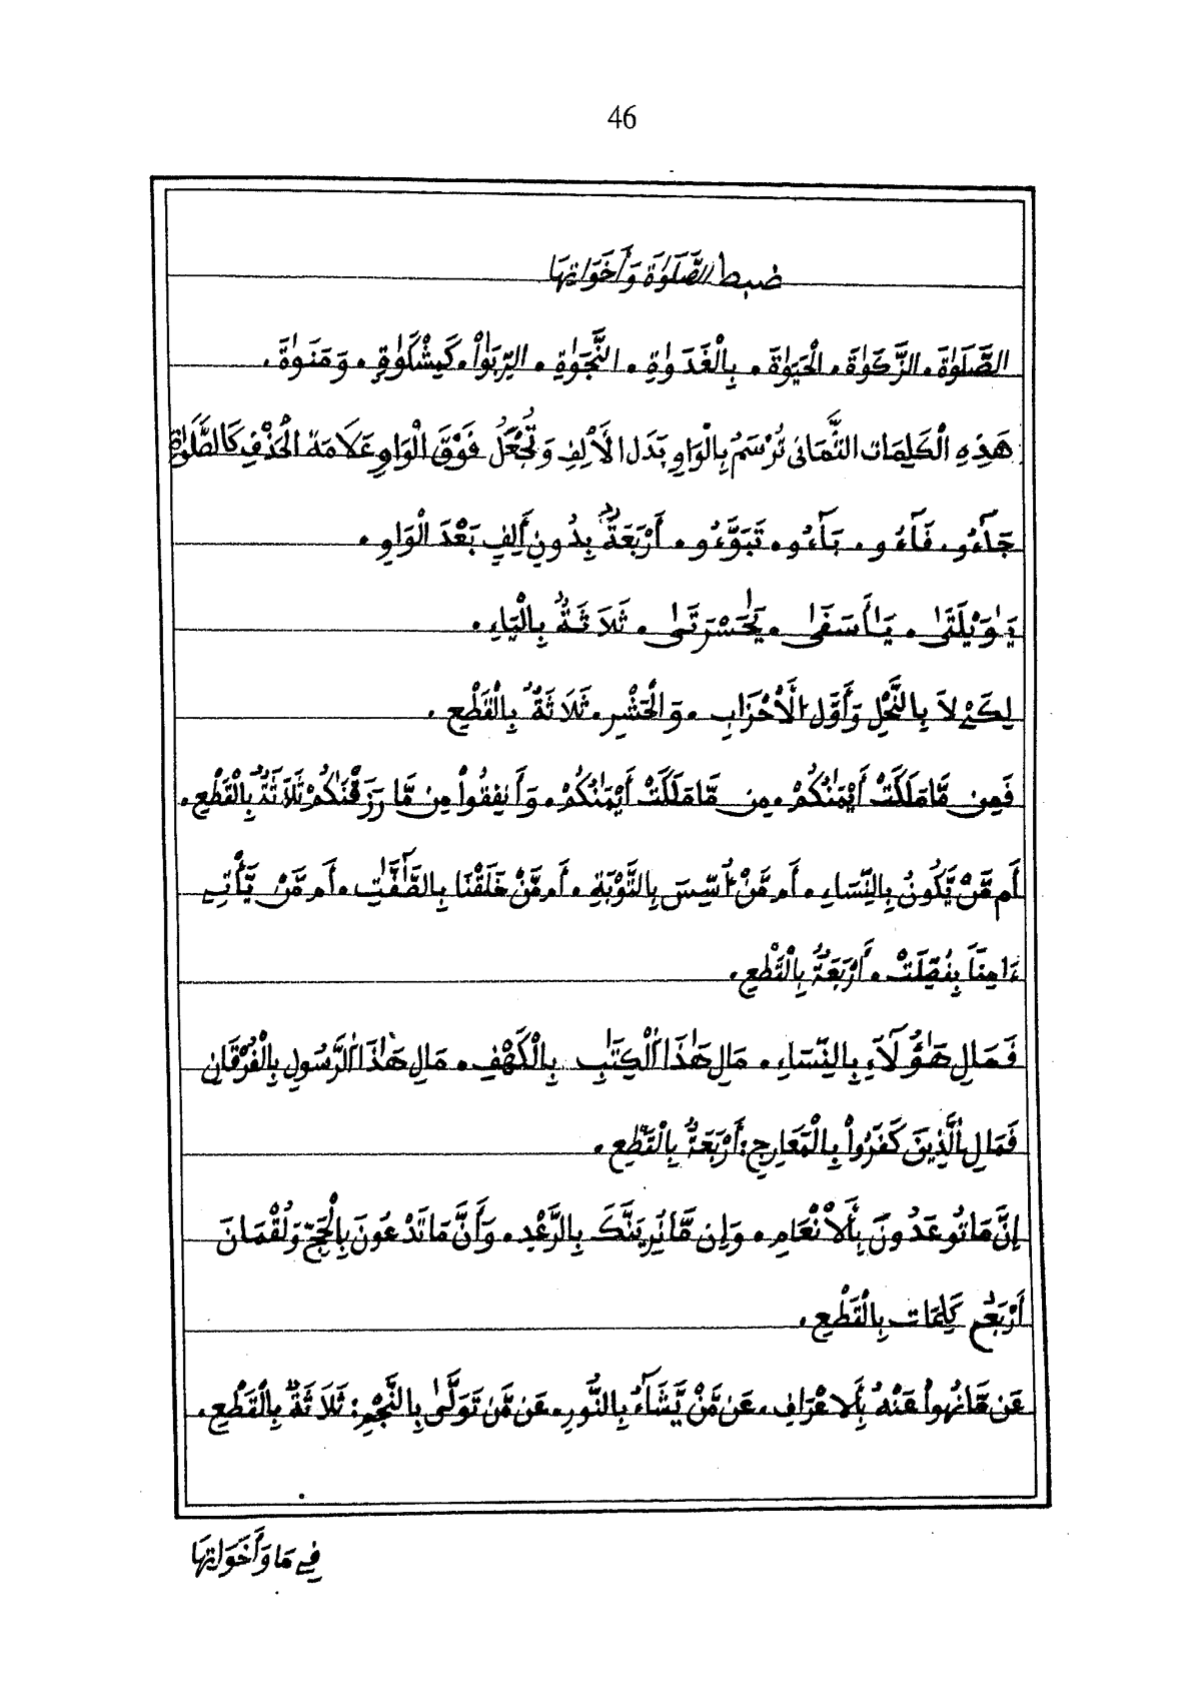 46
ضبط الصَّلَوٰةَ وَأَخَوَاتِهَا
الصَّلَوٰةَ . الزَّكَوٰةَ . الْحَيَوٰةَ . بِالْغَدَوٰةِ . النَّجَوٰةِ . الرِّبَوٰاْ . كَمِشْكَوٰةٍ . وَمَنَوٰةَ .
هَذِهِ الْكَلِمَات الثَّمَانِى تُرْسَمُ بِالْوَاوِ بَدَل الأَلِفِ وَتُجْعَلُ فَوْقَ الْوَاوِ عَلَامَةَ الْحَذْفِ كَالصَّلَوٰة
جَآءُو . فَآءُو . بَآءُو . تَبَوَّءُو . أَرْبَعَةٌ بِدُونِ أَلِفٍ بَعْدَ الْوَاوِ .
يَٰوَيْلَتَىٰ . يَٰأَسَفَىٰ . يَٰحَسْرَتَىٰ . ثَلَاثَةٌ بِالْيَاءِ .
لِكَىْ لَا بِالنَّحْلِ وَأَوَّلِ الْأَحْزَابِ . وَالْحَشْرِ . ثَلَاثَةٌ بِالْقَطْعِ .
فَمِن مَّا مَلَكَتْ أَيْمَٰنُكُمْ . مِن مَّا مَلَكَتْ أَيْمَٰنُكُمْ . وَأَنفِقُواْ مِن مَّا رَزَقْنَٰكُمْ ثَلَاثَةٌ بِالْقَطْعِ .
أَم مَّنْ يَّكُونُ بِالنِّسَاءِ . أَم مَّنْ أُسِّسَ بِالتَّوْبَةِ . أَم مَّنْ خَلَقْنَا بِالصَّٰٓفَّٰتِ . أَم مَّنْ يَّأْتِى
ءَامِنَاً بِفُصِّلَتْ . أَرْبَعَةٌ بِالْقَطْعِ .
فَمَالِ هَٰؤُلَآءِ بِالنِّسَاءِ . مَالِ هَٰذَا الْكِتَٰبِ بِالْكَهْفِ . مَالِ هَٰذَا الرَّسُولِ بِالْفُرْقَانِ
فَمَالِ الَّذِينَ كَفَرُواْ بِالْمَعَارِجِ : أَرْبَعَةٌ بِالْقَطْعِ .
إِنَّ مَا تُوعَدُونَ بِالْأَنْعَامِ . وَإِن مَّا نُرِيَنَّكَ بِالرَّعْدِ . وَأَنَّ مَا تَدْعُونَ بِالْحَجِّ وَلُقْمَانَ
أَرْبَعُ كَلِمَات بِالْقَطْعِ .
عَن مَّا نُهُواْ عَنْهُ بِالْأَعْرَافِ . عَن مَّنْ يَّشَآءُ بِالنُّورِ . عَن مَّن تَوَلَّىٰ بِالنَّجْمِ : ثَلَاثَةٌ بِالْقَطْعِ .
فِى مَا وَأَخَوَاتِهَا